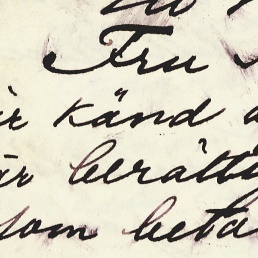 Fru
är känd
är berätti
som beta